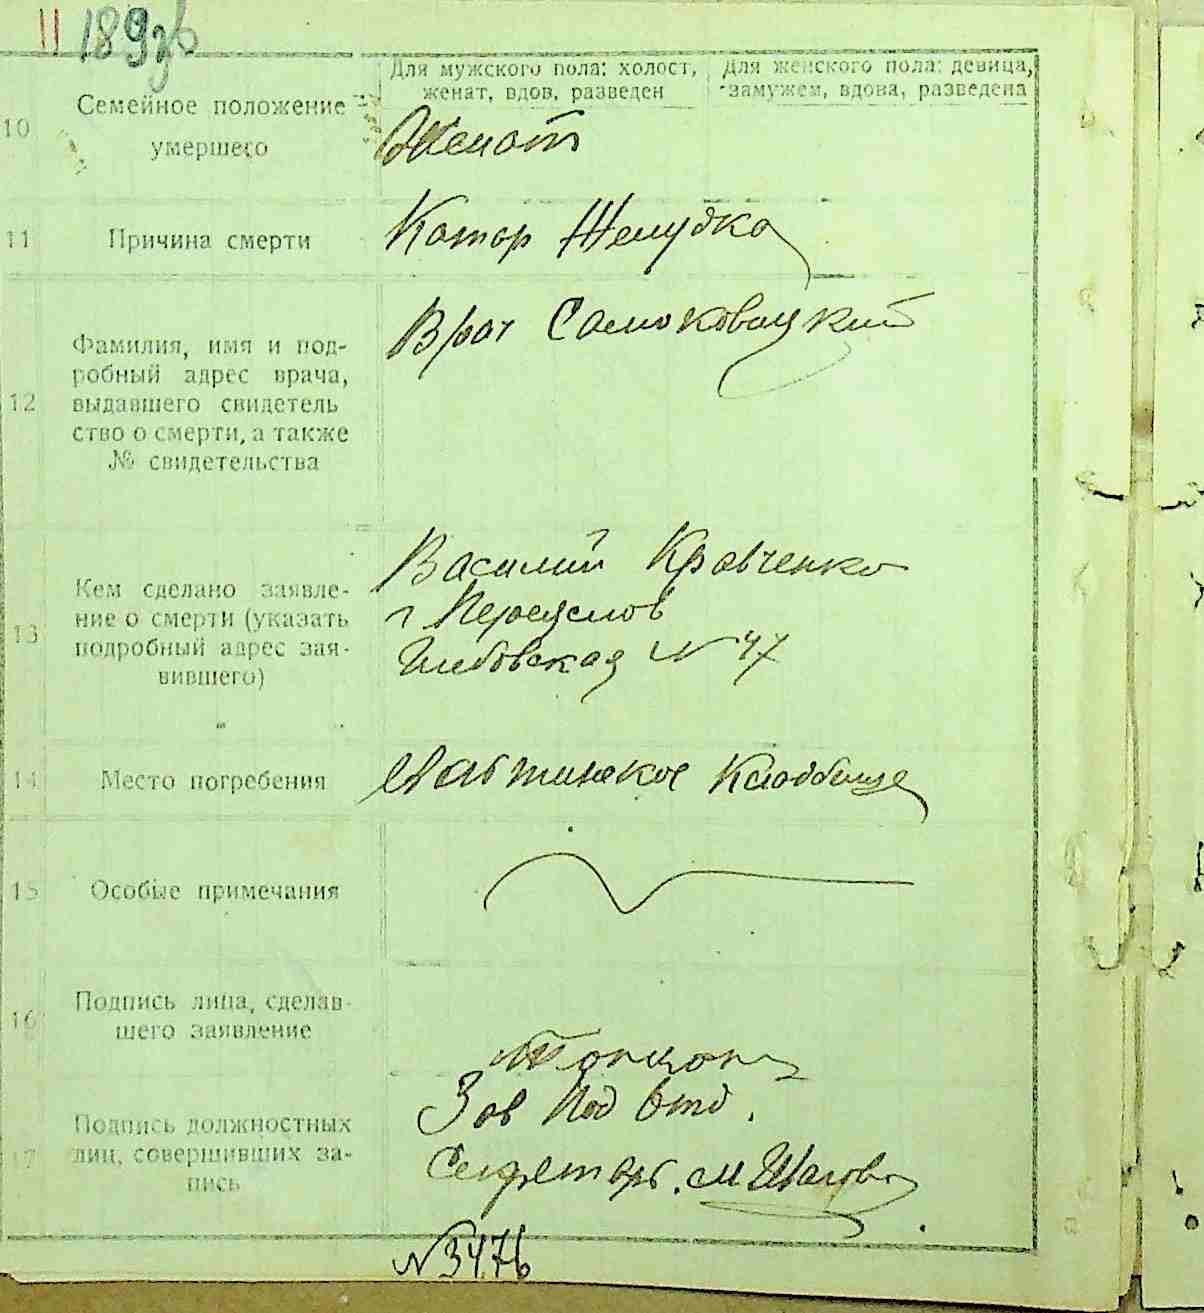 189
Для мужского пола: холост, женат, вдов, разведен
Для женского пола: девица, замужем, вдова, разведена
10
Семейное положение
умершего
Женат
11
Причина смерти
Катар Желудка
12
Фамилия, имя и под-
робный адрес врача,
выдавшего свидетель
ство о смерти, а также
№ свидетельства
Врач
13
Кем сделано заявле-
ние о смерти (указать
подробный адрес зая-
вившего)
Василий Кравченко
г Переяслов
№ 47
14
Место погребения
Кладбище
15
Особые примечания
16
Подпись лица, сделав-
шего заявление
17
Подпись должностных
лиц, совершивших за-
пись
Зав Под Отд.
Секретарь. М
№ 3476